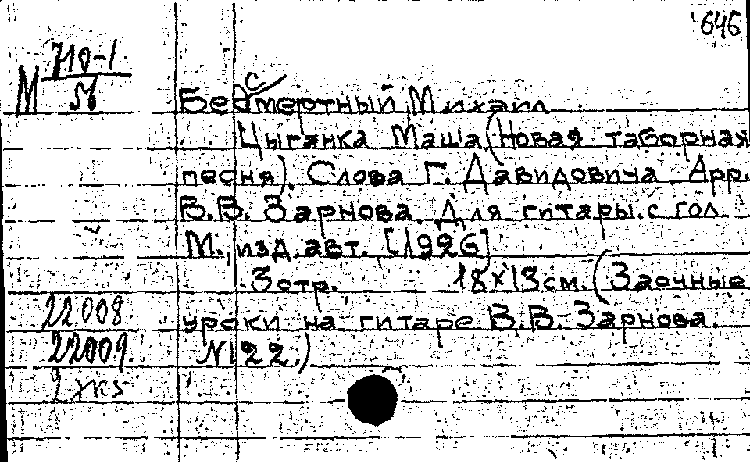 646
М 710-1
56
Бессмертный Михаил
Цыганка Маша (Новая таборная
песня). Слова Г. Давидовича. Арр.
В.В. Зарнова. Для гитары с гол.
М., изд. авт. [1926]
3 стр. 18х13 см. (Заочные
уроки на гитаре В.В. Зарнова.
N122.)
22008
22009.
2 экз